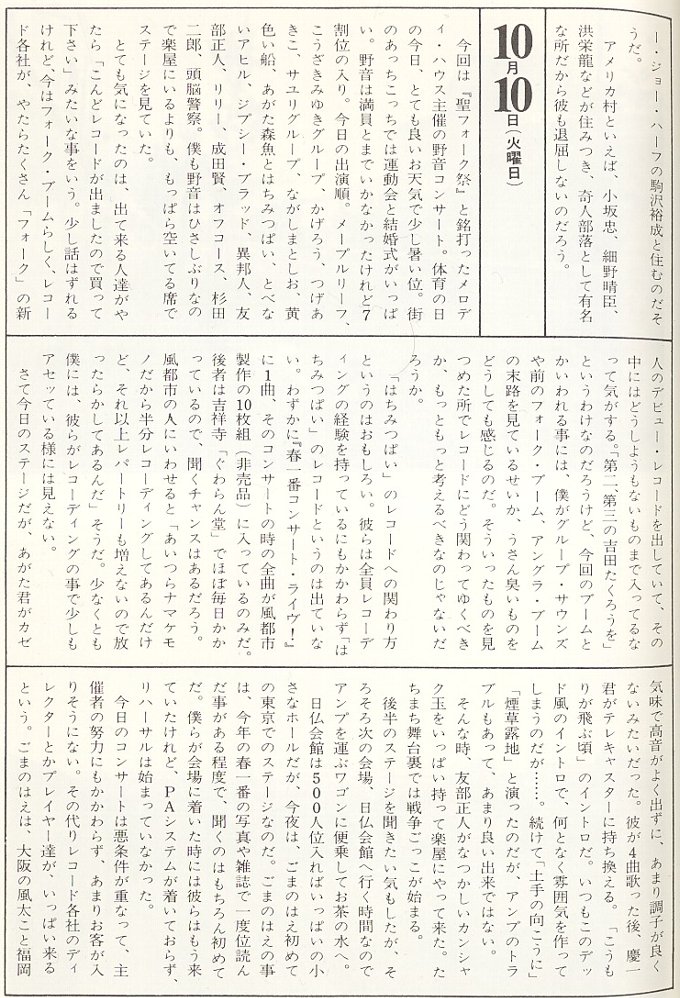 ー・ジョー・ハーフの駒沢裕成と住むのだそ
うだ。
アメリカ村といえば、小坂忠、細野晴臣、
洪栄龍などが住みつき、奇人部落として有名
な所だから彼も退屈しないのだろう。
10月10日(火曜日)
今回は『聖フォーク祭』と銘打ったメロデ
ィ・ハウス主催の野音コンサート。体育の日
の今日、とても良いお天気で少し暑い位。街
のあっちこっちでは運動会と結婚式がいっぱ
い。野音は満員とまでいかなかったけれど7
割位の入り。今日の出演順。メープルリーフ、
こうざきみゆきグループ、かげろう、つげあ
きこ、サユリグループ、ながしまとしお、黄
色い船、あがた森魚とはちみつぱい、とべな
いアヒル、ジプシー ブラッド、異邦人、友
部正人、リリー、成田賢、オフコース、杉田
二郎、頭脳警察。僕も野音はひさしぶりなの
で楽屋にいるよりも、もっぱら空いてる席で
ステージを見ていた。
とても気になったのは、出て来る人達がや
たら「こんどレコードが出ましたので買って
下さい」みたいな事をいう。少し話はずれる
けれど、今はフォーク・ブームらしく、レコー
ド各社が、やたらたくさん「フォーク」の新
人のデビュー・レコードを出していて、その
中にはどうしようもないものまで入ってるな
って気がする。「第二、第三の吉田たくろうを」
というわけなのだろうけど、今回のブームと
かいわれる事には、僕がグループ・サウンズ
や前のフォーク・ブーム、アングラ・ブーム
の末路を見ているせいか、うさん臭いものを
どうしても感じるのだ。そういったものを見
つめた所でレコードにどう関わってゆくべき
か、もっともっと考えるべきなのじゃないだ
ろうか。
「はちみつぱい」のレコードへの関わり方
というのはおもしろい。彼らは全員レコーデ
ィングの経験を持っているにもかかわらず「は
ちみつぱい」のレコードというのは出ていな
い。わずかに『春一番コンサート・ライヴ!』
に1曲、そのコンサートの時の全曲が風都市
製作の10枚組(非売品)に入っているのみだ。
後者は吉祥寺「ぐゎらん堂」でほぼ毎日かか
っているので、聞くチャンスはあるだろう。
風都市の人にいわせると「あいつらナマケモ
ノだから半分レコーディングしてあるんだけ
ど、それ以上レパートリーも増えないので放
ったらかしてあるんだ」そうだ。少なくとも
僕には、彼らがレコーディングの事で少しも
アセッている様には見えない。
さて今日のステージだが、あがた君がカゼ
気味で高音がよく出ずに、あまり調子が良く
ないみたいだった。彼が4曲歌った後、慶一
君がテレキャスターに持ち換える。「こうも
りが飛ぶ頃」のイントロだ。いつもこのデッ
ド風のイントロで、何となく雰囲気を作って
しまうのだが……。続けて「土手の向こうに」
「煙草路地」と演ったのだが、アンプのトラ
ブルもあって、あまり良い出来ではない。
そんな時、友部正人がなつかしいカンシャ
ク玉をいっぱい持って楽屋にやって来た。た
ちまち舞台裏では戦争ごっこが始まる。
後半のステージを聞きたい気もしたが、そ
ろそろ次の会場、日仏会館へ行く時間なので
アンプを運ぶワゴンに便乗してお茶の水へ。
日仏会館は500人位入ればいっぱいの小
さなホールだが、今夜は、ごまのはえ初めて
の東京でのステージなのだ。ごまのはえの事
は、今年の春一番の写真や雑誌で一度位読ん
だ事がある程度で、聞くのはもちろん初めて
だ。僕らが会場に着いた時には彼らはもう来
ていたけれど、PAシステムが着いておらず、
リハーサルは始まっていなかった。
今日のコンサートは悪条件が重なって、主
催者の努力にもかかわらず、あまりお客が入
りそうにない。その代りレコード各社のディ
レクターとかプレイヤー達が、いっぱい来る
という。ごまのはえは、大阪の風太こと福岡